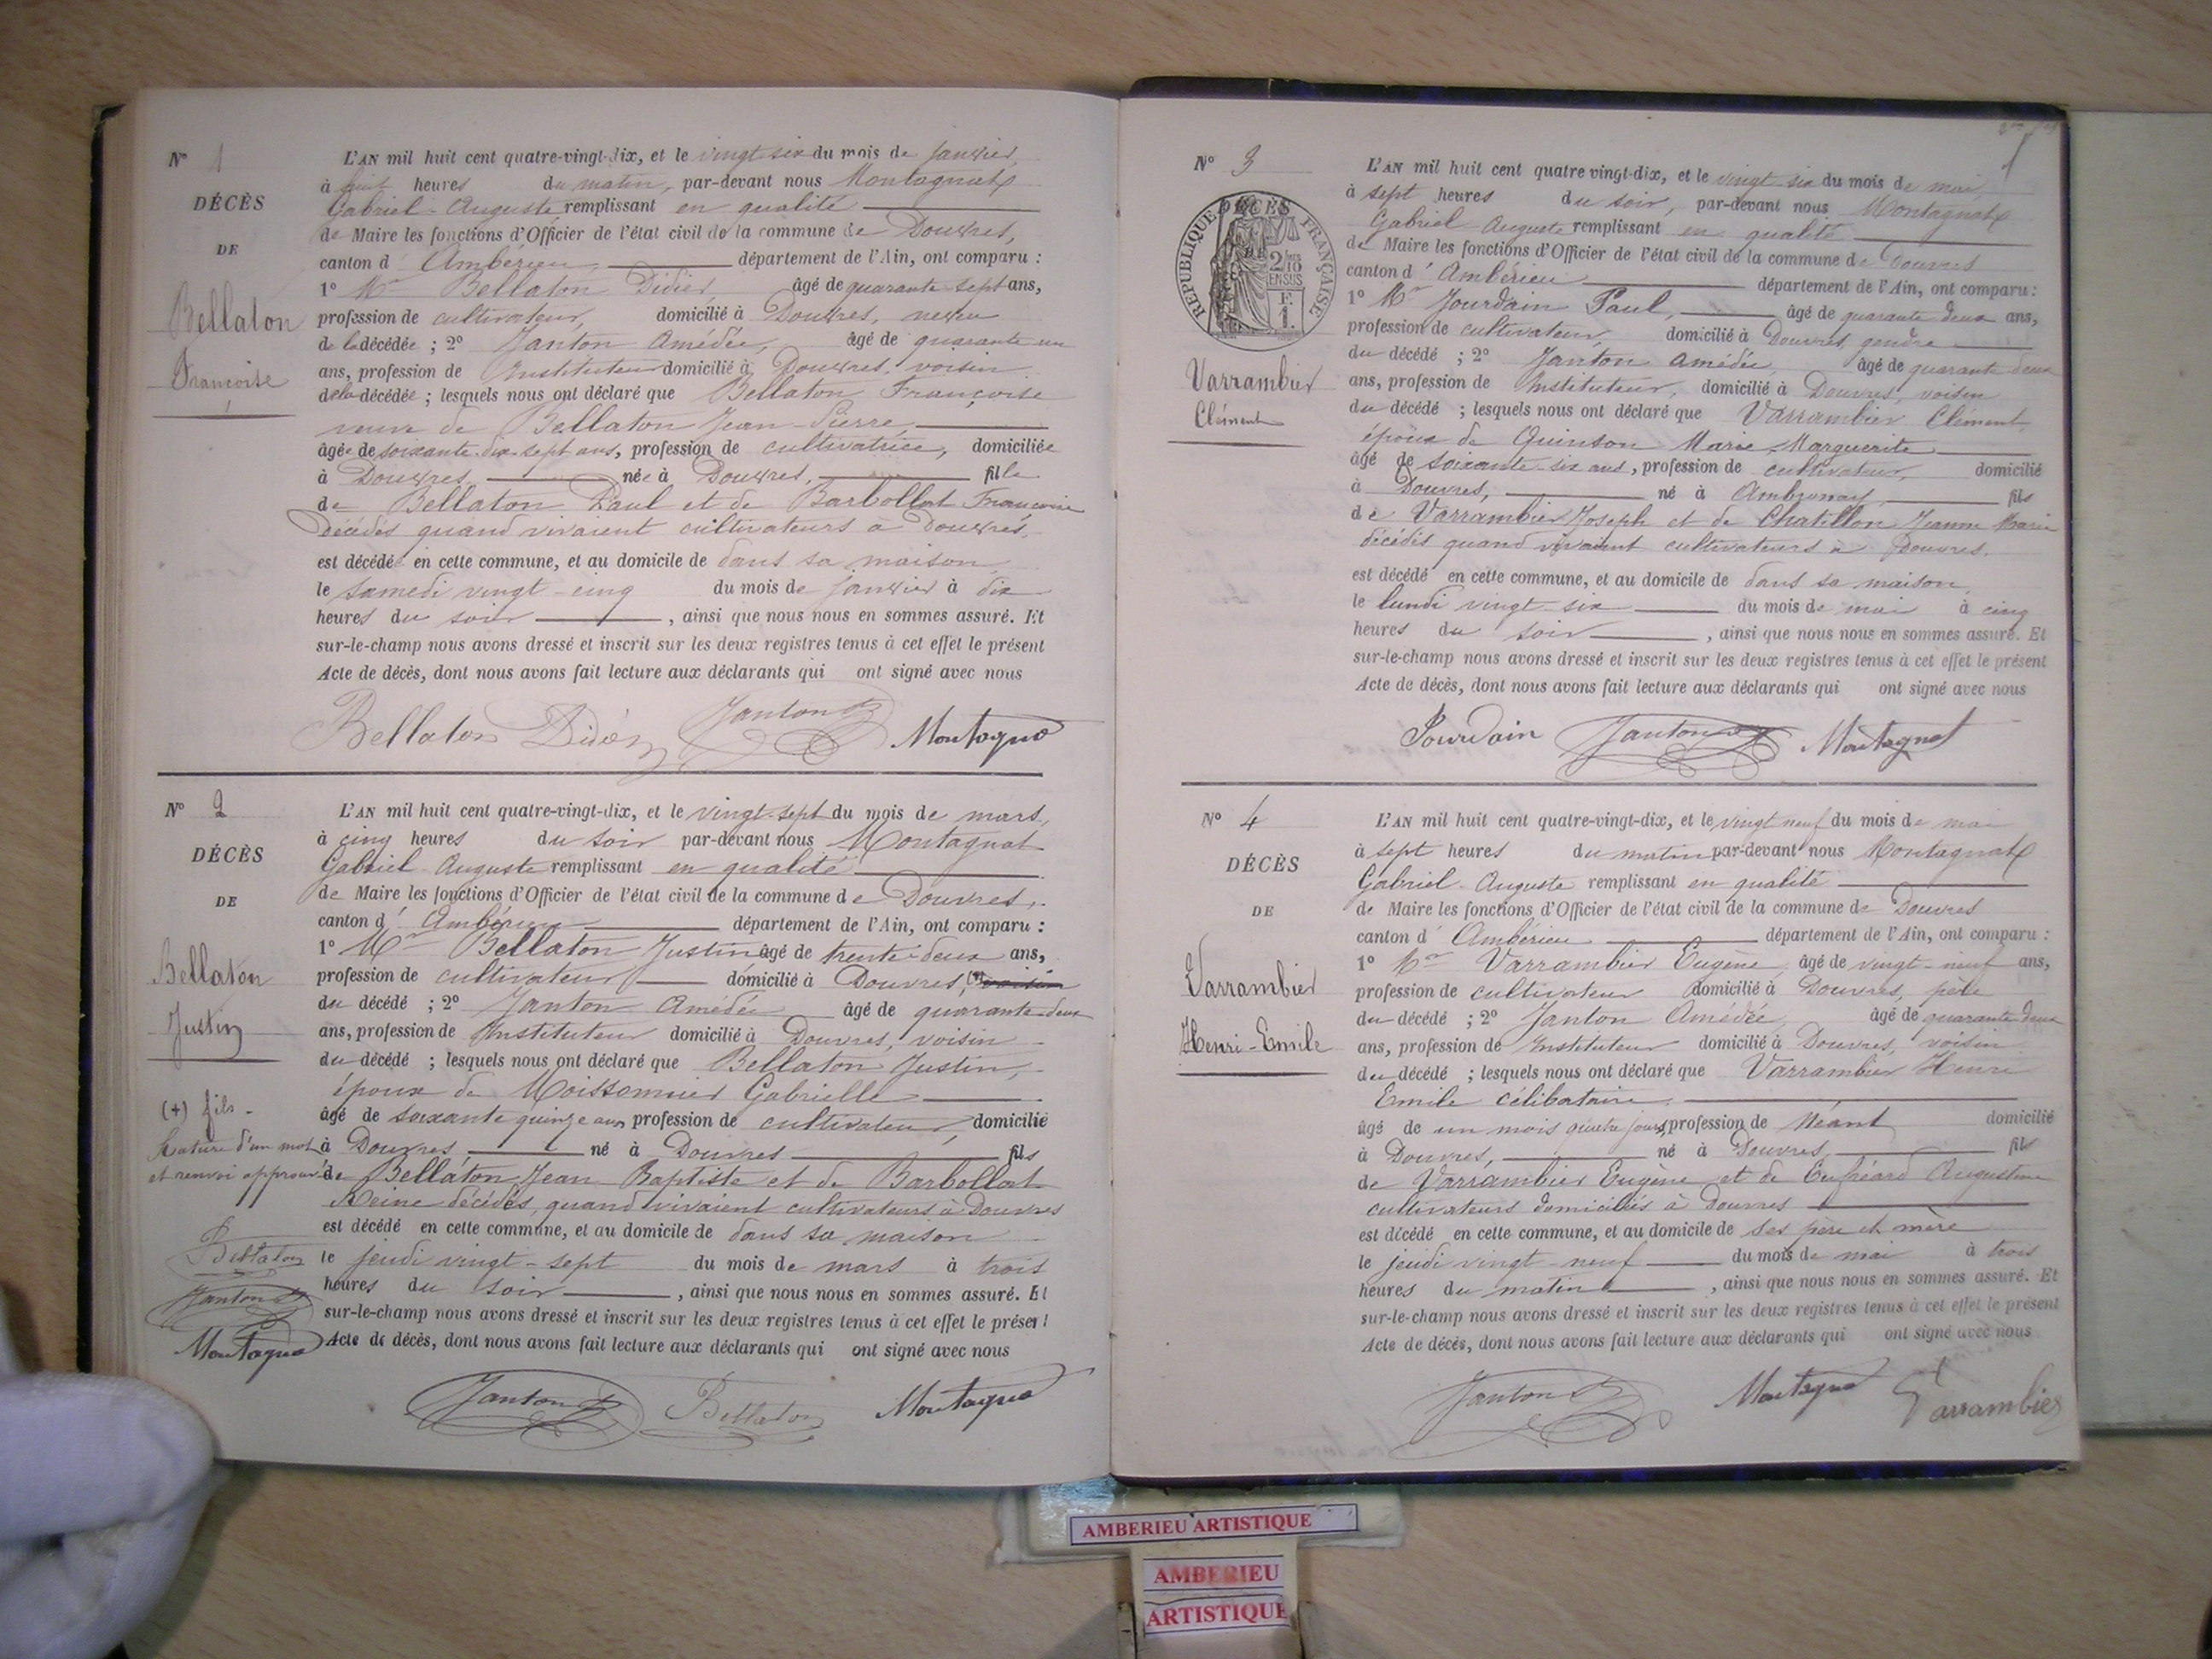 N° 1
DÉCÈS
DE
Bellaton
Françoise
L'AN mil huit cent quatre-vingt-dix, et le vingt six du mois de janvier,
à huit heures du matin, par-devant nous Montagnat
Gabriel-Auguste remplissant en qualité
de Maire les fonctions d'Officier de l'état civil de la commune de Douvres,
canton d'Ambérieu, département de l'Ain, ont comparu :
1° Mr Bellaton Didier âgé de quarante-sept ans,
profession de cultivateur, domicilié à Douvres, neveu
de la décédée ; 2° Janton Amédée, âgé de quarante un
ans, profession de Instituteur domicilié à Douvres, voisin
de la décédée ; lesquels nous ont déclaré que Bellaton Françoise
veuve de Bellaton Jean-Pierre,
âgée de soixante-dix-sept ans, profession de cultivatrice, domiciliée
à Douvres, née à Douvres, fille
de Bellaton Paul et de Barbollat Françoise
Décédés quand vivaient cultivateurs à Douvres,
est décédée en cette commune, et au domicile de dans sa maison
le samedi vingt-cinq du mois de janvier à dix
heures du soir, ainsi que nous nous en sommes assuré. Et
sur-le-champ nous avons dressé et inscrit sur les deux registres tenus à cet effet le présent
Acte de décès, dont nous avons fait lecture aux déclarants qui ont signé avec nous
Bellaton Didier Janton Montagnat
N° 2
DÉCÈS
DE
Bellaton
Justin
(+) fils -
Rature d'un mot
et renvoi approuvé
Bellaton
Janton
Montagnat
L'AN mil huit cent quatre-vingt-dix, et le vingt-sept du mois de mars,
à cinq heures du soir par-devant nous Montagnat
Gabriel-Auguste remplissant en qualité
de Maire les fonctions d'Officier de l'état civil de la commune de Douvres,
canton d'Ambérieu département de l'Ain, ont comparu :
1° Mr Bellaton Justin âgé de trente-deux ans,
profession de cultivateur domicilié à Douvres, (+) voisin
du décédé ; 2° Janton Amédée âgé de quarante-deux
ans, profession de Instituteur domicilié à Douvres, voisin
du décédé ; lesquels nous ont déclaré que Bellaton Justin,
époux de Moissonnier Gabrielle
âgé de soixante quinze ans, profession de cultivateur, domicilié
à Douvres, né à Douvres fils
de Bellaton Jean Baptiste et de Barbollat
Reine décédés, quand vivaient cultivateurs à Douvres
est décédé en cette commune, et au domicile de dans sa maison
le jeudi vingt-sept du mois de mars à trois
heures du soir, ainsi que nous nous en sommes assuré. Et
sur-le-champ nous avons dressé et inscrit sur les deux registres tenus à cet effet le présent
Acte de décès, dont nous avons fait lecture aux déclarants qui ont signé avec nous
Janton Bellaton Montagnat
N° 3
DÉCÈS
REPUBLIQUE FRANÇAISE
2/10
EN SUS
F.
1.
Varrambier
Clément
L'AN mil huit cent quatre vingt-dix, et le vingt-six du mois de mai,
à sept heures du soir, par-devant nous Montagnat
Gabriel Auguste remplissant en qualité
de Maire les fonctions d'Officier de l'état civil de la commune de Douvres
canton d'Ambérieu département de l'Ain, ont comparu :
1° Mr Jourdain Paul, âgé de quarante deux ans,
profession de cultivateur, domicilié à Douvres, gendre
du décédé ; 2° Janton Amédée, âgé de quarante deux
ans, profession de Instituteur, domicilié à Douvres, voisin
du décédé ; lesquels nous ont déclaré que Varrambier Clément
époux de Quinson Marie-Marguerite
âgé de soixante-six ans, profession de cultivateur, domicilié
à Douvres, né à Ambronay fils
de Varrambier Joseph et de Chatillon Jeanne Marie
décédés quand vivaient cultivateurs à Douvres.
est décédé en cette commune, et au domicile de dans sa maison,
le lundi vingt-six du mois de mai à cinq
heures du soir, ainsi que nous nous en sommes assuré. Et
sur-le-champ nous avons dressé et inscrit sur les deux registres tenus à cet effet le présent
Acte de décès, dont nous avons fait lecture aux déclarants qui ont signé avec nous
Jourdain Janton Montagnat
N° 4
DÉCÈS
DE
Varrambier
Henri-Emile
L'AN mil huit cent quatre-vingt-dix, et le vingt neuf du mois de mai
à sept heures du matin par-devant nous Montagnat
Gabriel-Auguste remplissant en qualité
de Maire les fonctions d'Officier de l'état civil de la commune de Douvres
canton d'Ambérieu département de l'Ain, ont comparu :
1° Mr Varrambier Eugène, âgé de vingt-neuf ans,
profession de cultivateur domicilié à Douvres, père
du décédé ; 2° Janton Amédée, âgé de quarante deux
ans, profession de Instituteur domicilié à Douvres, voisin
du décédé ; lesquels nous ont déclaré que Varrambier Henri
Emile célibataire,
âgé de un mois quatre jours, profession de Néant domicilié
à Douvres, né à Douvres, fils
de Varrambier Eugène et de Augustine
cultivateurs domiciliés à Douvres
est décédé en cette commune, et au domicile de ses père et mère
le jeudi vingt-neuf du mois de mai à trois
heures du matin, ainsi que nous nous en sommes assuré. Et
sur-le-champ nous avons dressé et inscrit sur les deux registres tenus à cet effet le présent
Acte de décès, dont nous avons fait lecture aux déclarants qui ont signé avec nous
Janton Montagnat Varrambier
AMBERIEU ARTISTIQUE
AMBERIEU
ARTISTIQUE